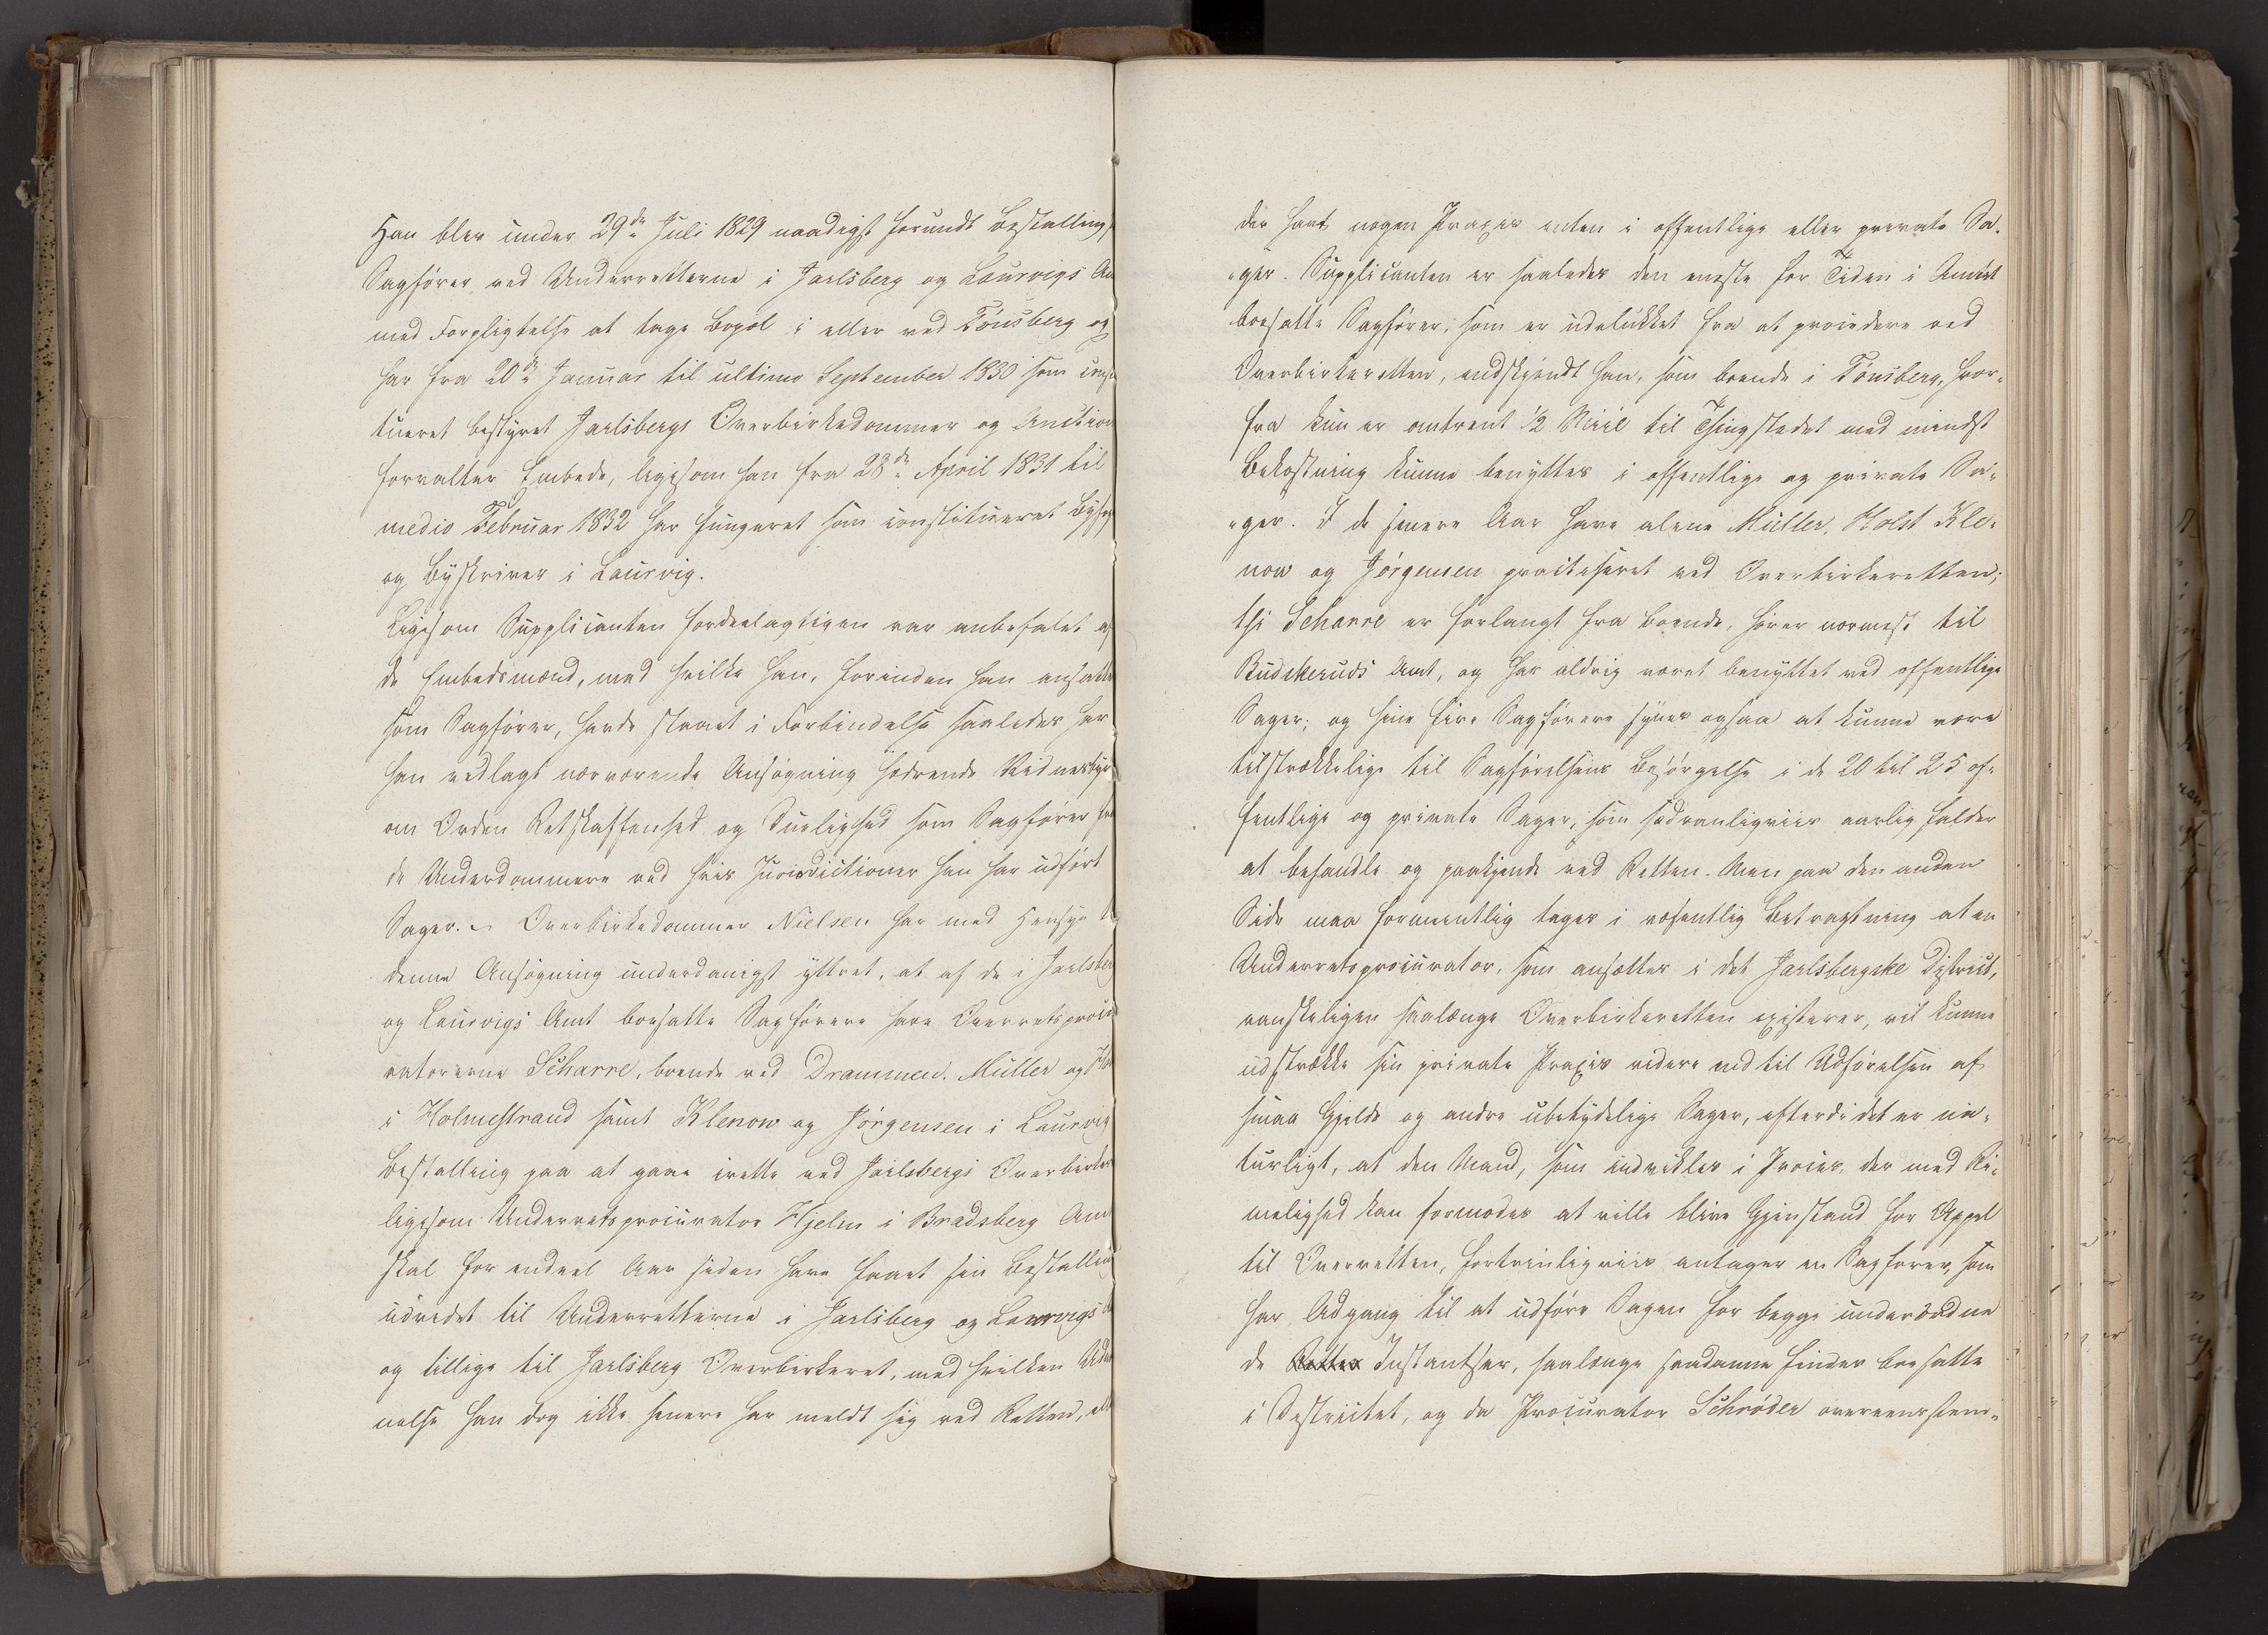 Han blev under 29de Juli 1829 naadigst forundt Bestalling
Sagfører ved Underretterne i Jarlsberg og Laurvigs
med Forpligtelse at tage Bopæl i eller ved Tönsberg og
har fra 20de Januar til ultimo September 1830 som
tueret bestyret Jarlsbergs Overbirkedommer og Auction
forvalter Embede, ligesom han fra 28de April 1831 til
medio Februar 1832 har fungeret som constitueret
og Byskriver i Laurvig.
Ligesom Supplicanten fordeelagtigen var anbefalet af
de Embedsmænd, med hvilke han, forinden han ansattes
som Sagfører, havde staaet i Forbindelse saaledes har
han vedlagt nærværende Ansögning hædrende
om Orden Retskaffenhed og Duelighed som Sagfører fra
de Underdommere ved hvis Jurisdictioner han har udfört
Sager. – Overbirkedommer Nielsen har med Hensyn
denne Ansögning underdanigst yttret, at af de i Jarlsberg
og Laurvigs Amt boesatte Sagförere have
ratorerne Scharre, boende ved Drammen. Müller og
i Holmestrand samt Klenow og Jörgensen i Laurvig
Bestalling paa at gaae irette ved Jarlsbergs
ligesom Underretsprocurator Hjelm i Bradsberg Amt
skal for endeel Aar siden have faaet sin Bestalling
udvidet til Underretterne i Jarlsberg og Laurvigs
og tillige til Jarlsberg Overbirkeret, med hvilken
nelse han dog ikke senere har meldt sig ved Retten,
der havt nogen Praxis enten i offentlige eller private Sa-
"ger. Supplicanten er saaledes den eneste for Tiden i Amtet
boesatte Sagfører, som er udelukket fra at procedere ved
Overbirkeretten, endskjöndt han, som boende i Tönsberg, hvor-
fra kun er omtrent ½ Miil til Thingstedet med mindst
Bekostning kunne benyttes i offentlige og private Sa-
"ger. I de senere Aar have alene Müller, Holst Kle-
now og Jörgensen practiseret ved Overbirkeretten;
thi Scharre er forlangt fra boende, hører nærmest til
Budskeruds Amt, og har aldrig været benyttet ved offentlige
Sager; og hine fire Sagförere synes ogsaa at kunne være
tilstrækkelige til Sagförelsens Besörgelse i de 20 til 25 of-
fentlige og private Sager, som sædvanligviis aarlig falder
at behandle og paakjende ved Retten. Men paa den anden
Side maa formeentlig tages i væsentlig Betragtning at en
Underretsprocurator, som ansættes i det Jarlsbergske District,
vanskeligen saalænge Overbirkeretten existerer, vil kunne
udstrække sin private Praxis videre end til Udförelsen af
smaa Gjelds og andre ubetydelige Sager, efterdi det er na-
turligt, at den Mand, som indvikles i Proces, der med Ri-
melighed kan formodes at ville blive Gjenstand for Appel
til Overretten, fortrinligviis antager en Sagfører, som
har Adgang til at udföre Sagen for begge underordne
de Retter Instantser, saalænge saadanne findes boesatte
i Districtet, og da Procurator Schröder overeensstem-